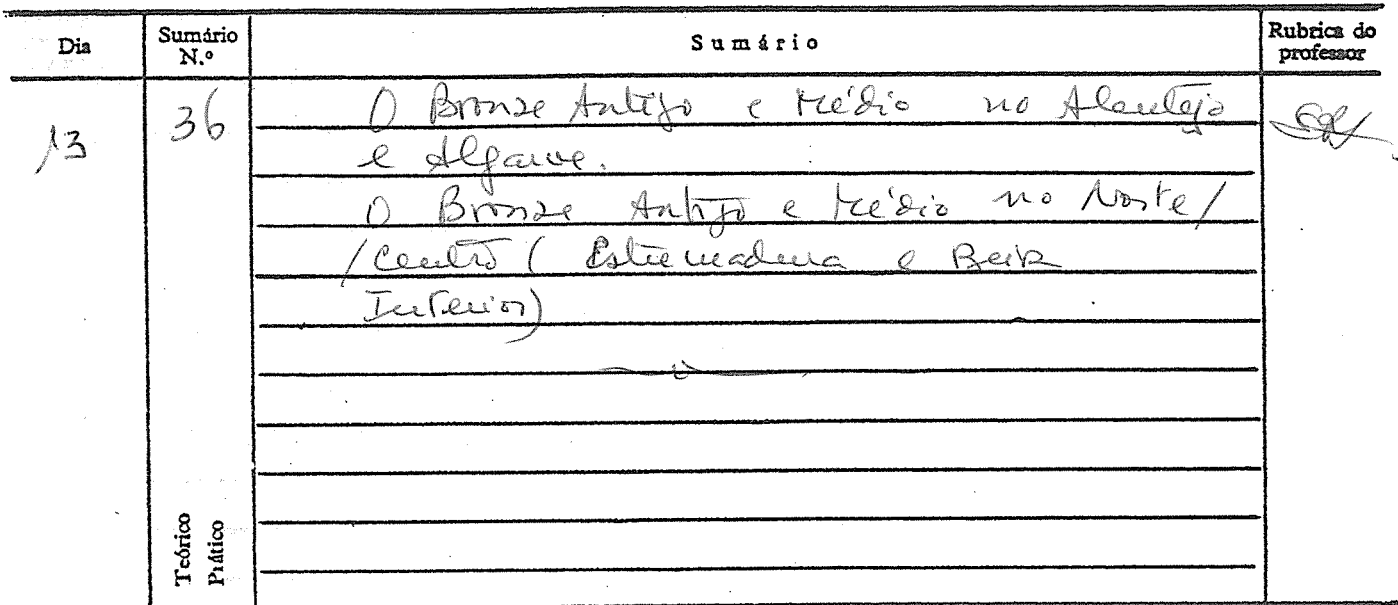 Dia Sumário N.º Sumário Rubrica do professor
13 36 O Bronze Antigo e Médio no Alentejo
e Algarve.
O Bronze Antigo e Médio no Norte/
/Centro (Estremadura e Beira
Interior)
Teórico
Prático